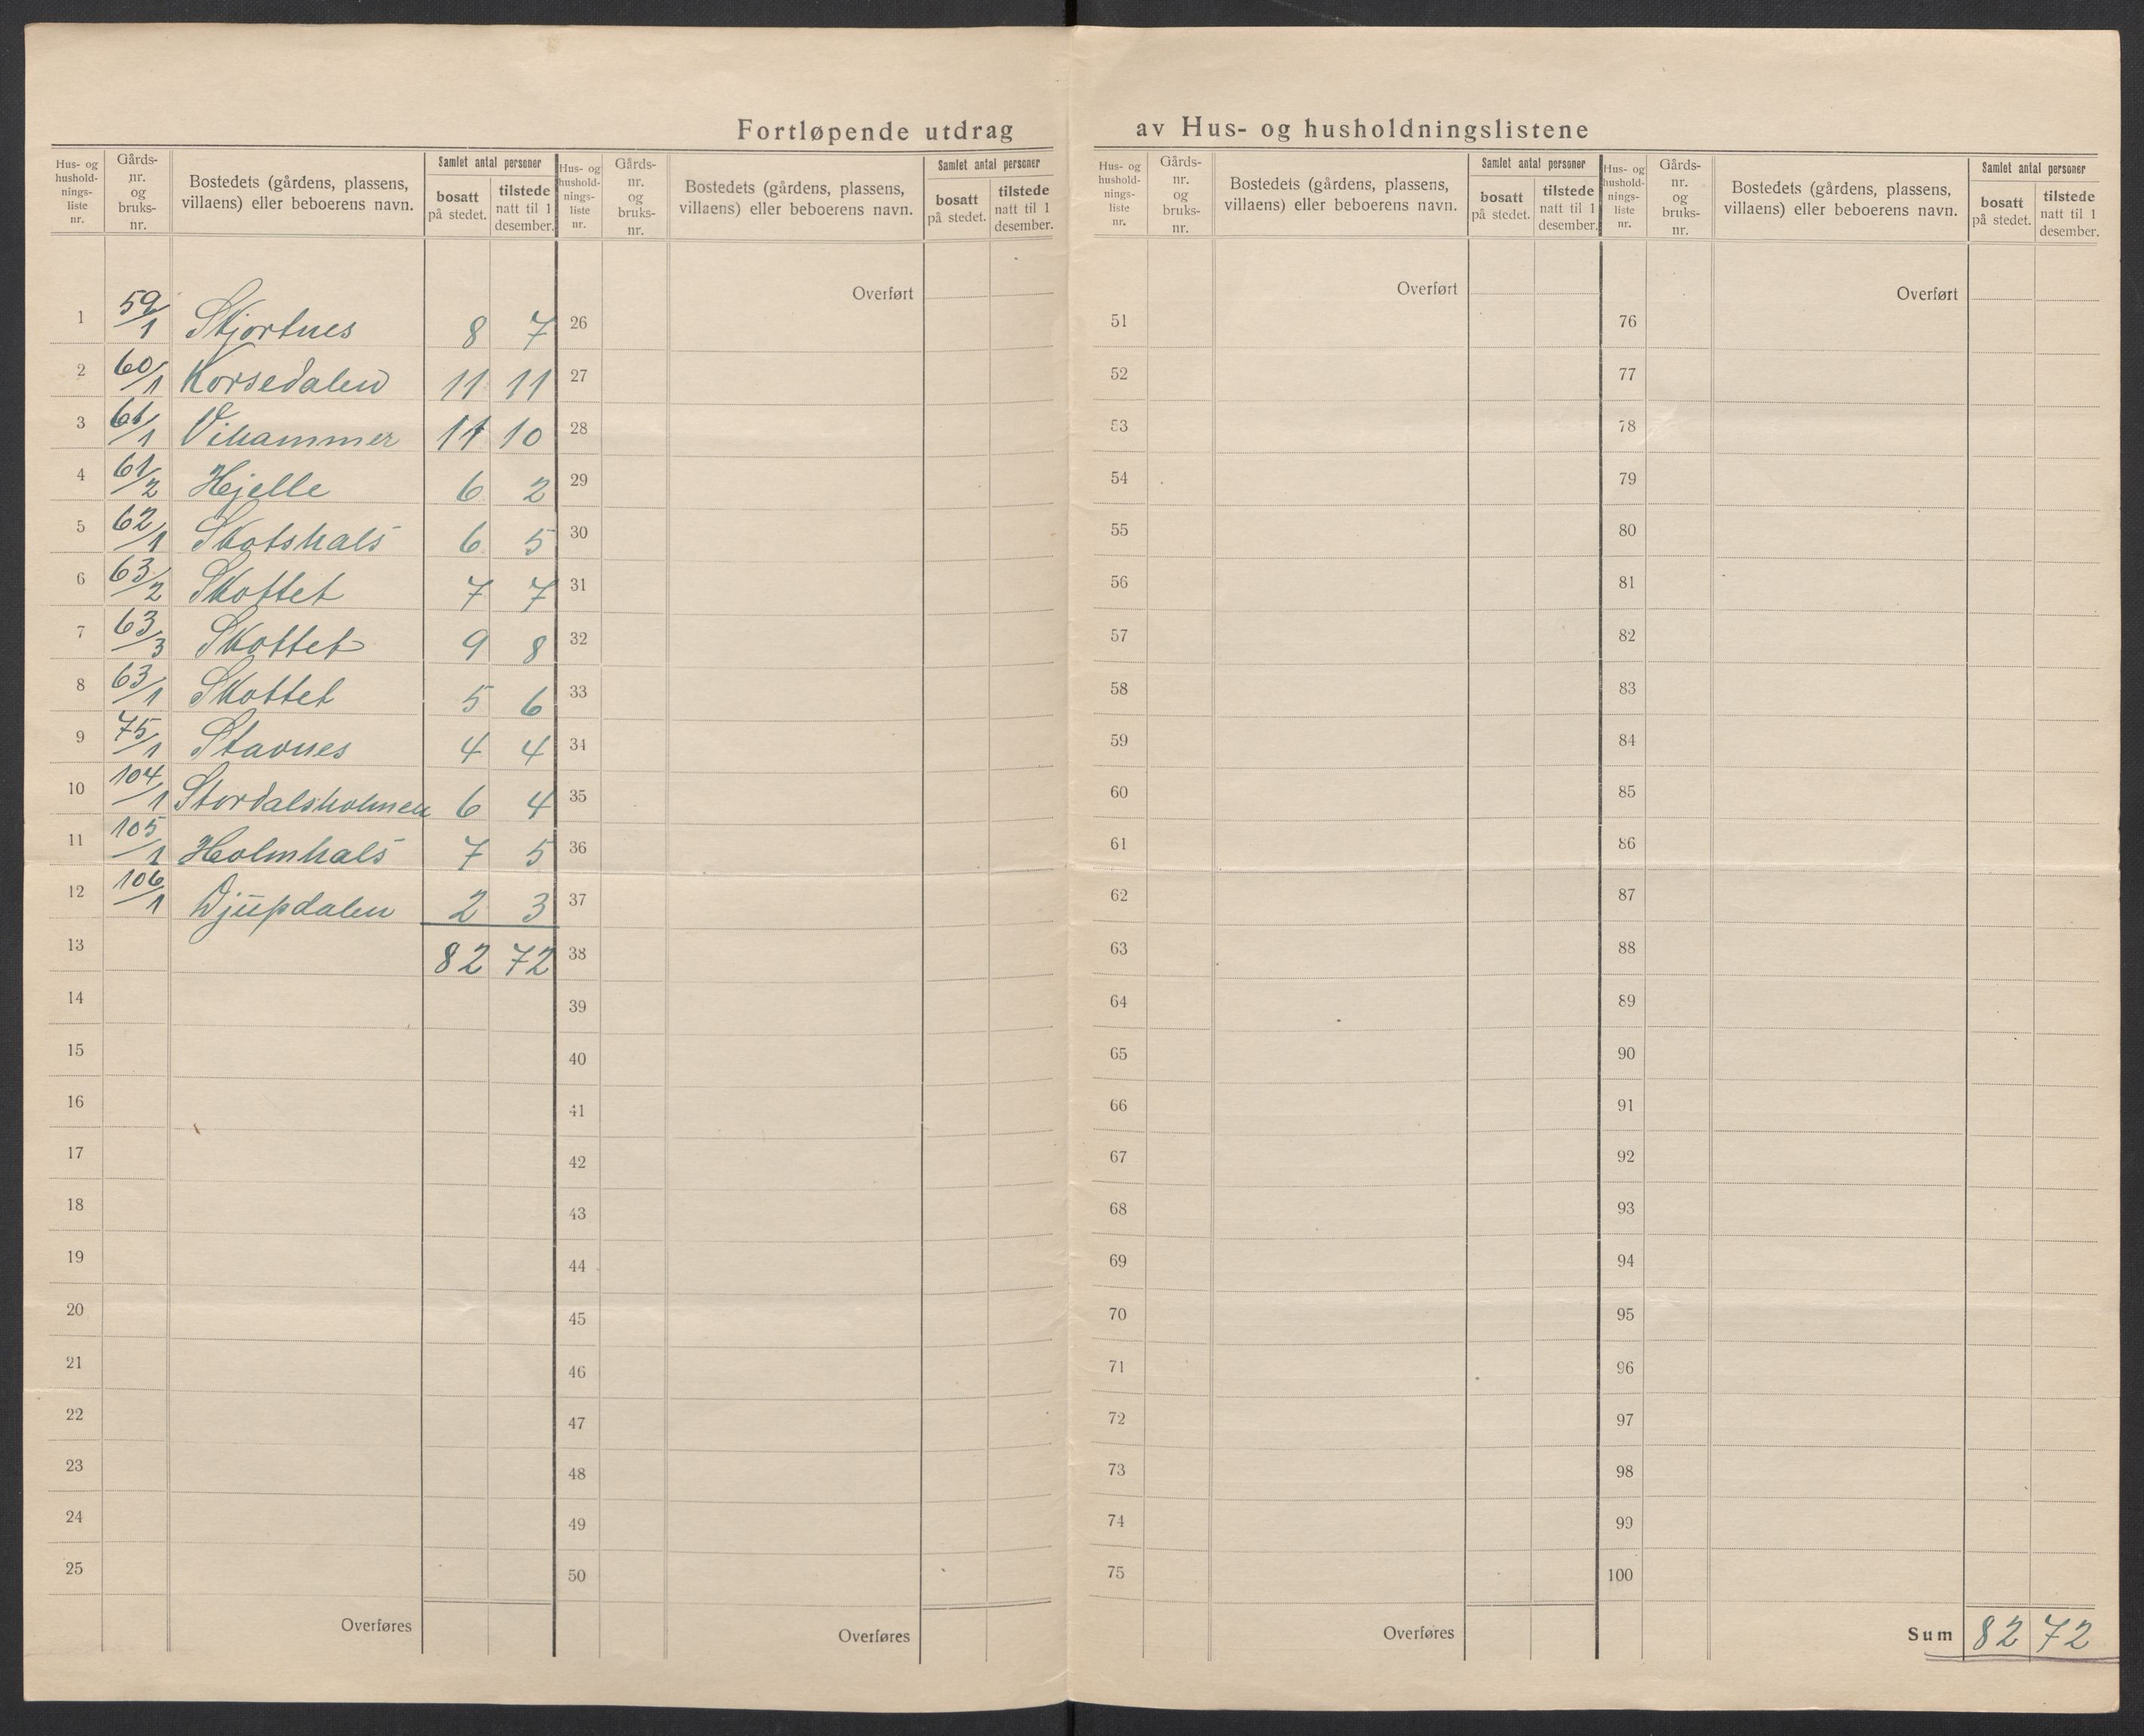 Fortløpende utdrag av Hus- og husholdningslistene
Hus- og hushold- nings- liste nr. | Gårds- nr. og bruks- nr. | Bostedets (gårdens, plassens, villaens) eller beboerens navn. | Samlet antal personer | bosatt på stedet. | tilstede natt til 1 desember.
1 59/1 Skjortnes 8 7
2 60/1 Korsedalen 11 11
3 61/1 Vihammer 11 10
4 61/2 Hjelle 6 2
5 62/1 Skotshals 6 5
6 63/2 Skottet 7 7
7 63/3 Skottet 9 8
8 63/1 Skottet 5 6
9 75/1 Stavnes 4 4
10 104/1 Stordalsholmen 6 4
11 105/1 Holmhals 7 5
12 106/1 Djupdalen 2 3
13 82 72
14
15
16
17
18
19
20
21
22
23
24
25
Overføres
Hus- og hushold- nings- liste nr. | Gårds- nr. og bruks- nr. | Bostedets (gårdens, plassens, villaens) eller beboerens navn. | Samlet antal personer | bosatt på stedet. | tilstede natt til 1 desember.
Overført
26
27
28
29
30
31
32
33
34
35
36
37
38
39
40
41
42
43
44
45
46
47
48
49
50
Overføres
Hus- og hushold- nings- liste nr. | Gårds- nr. og bruks- nr. | Bostedets (gårdens, plassens, villaens) eller beboerens navn. | Samlet antal personer | bosatt på stedet. | tilstede natt til 1 desember.
Overført
51
52
53
54
55
56
57
58
59
60
61
62
63
64
65
66
67
68
69
70
71
72
73
74
75
Overføres
Hus- og hushold- nings- liste nr. | Gårds- nr. og bruks- nr. | Bostedets (gårdens, plassens, villaens) eller beboerens navn. | Samlet antal personer | bosatt på stedet. | tilstede natt til 1 desember.
Overført
76
77
78
79
80
81
82
83
84
85
86
87
88
89
90
91
92
93
94
95
96
97
98
99
100
Sum 82 72